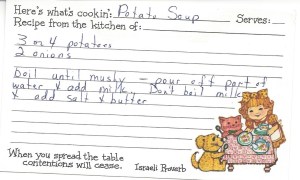 Here's what's cookin': Potato Soup Serves:
Recipe from the kitchen of:
3 or 4 potatoes
2 onions
boil until mushy - pour off part of
water & add milk. Don't boil milk
& add salt & butter
When you spread the table
contentions will cease. Israeli Proverb